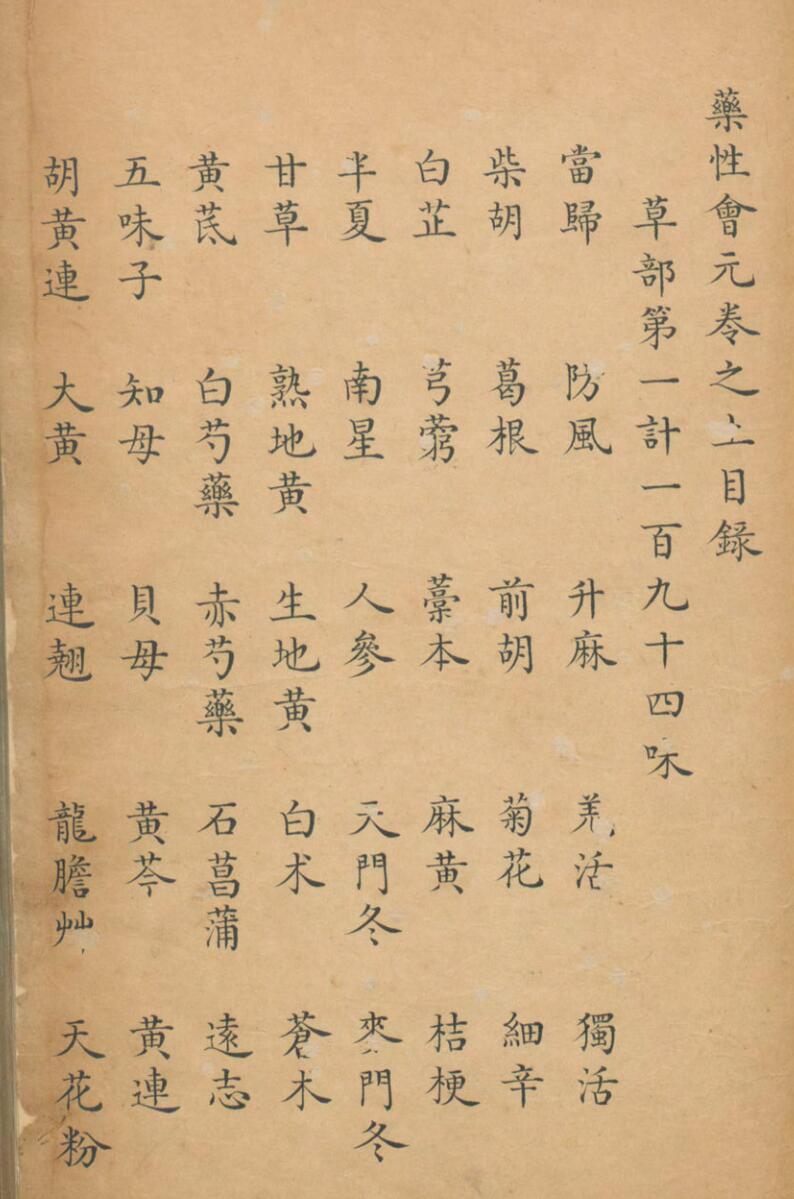 藥性會元卷之上目錄
草部第一計一百九十四味
當歸 防風 升麻 羌活 獨活
柴胡 葛根 前胡 菊花 細辛
白芷 芎藭 藁本 麻黃 桔梗
半夏 南星 人參 天門冬 麥門冬
甘草 熟地黃 生地黃 白术 蒼术
黃芪 白芍藥 赤芍藥 石菖蒲 遠志
五味子 知母 貝母 黃芩 黃連
胡黃連 大黃 連翹 龍膽艸 天花粉